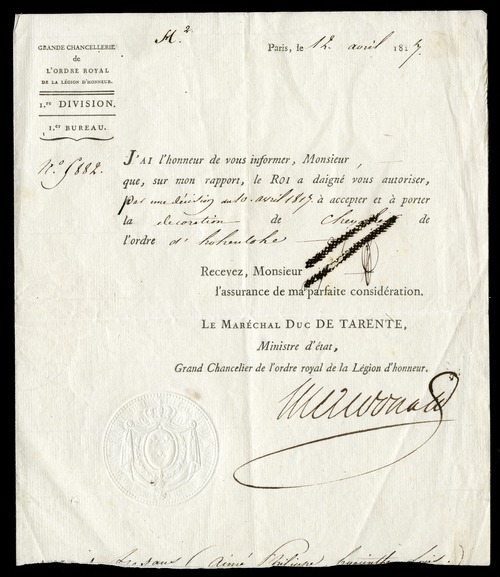 GRANDE CHANCELLERIE
de
L'ORDRE ROYAL
DE LA LÉGION D'HONNEUR.
1.re DIVISION.
1.er BUREAU.
N.o 5882.
M.2
Paris, le 12 avril 1817.
J'AI l'honneur de vous informer, Monsieur
que, sur mon rapport, le ROI a daigné vous autoriser,
par une décision du 10 avril 1817 à accepter et à porter
la decoration de Chevalier de
l'ordre d'hohenlohe
Recevez, Monsieur
l'assurance de ma parfaite considération.
LE MARÉCHAL DUC DE TARENTE,
Ministre d'état,
Grand Chancelier de l'ordre royal de la Légion d'honneur.
Macdonald
(aimé Philippe hyacinthe Louis